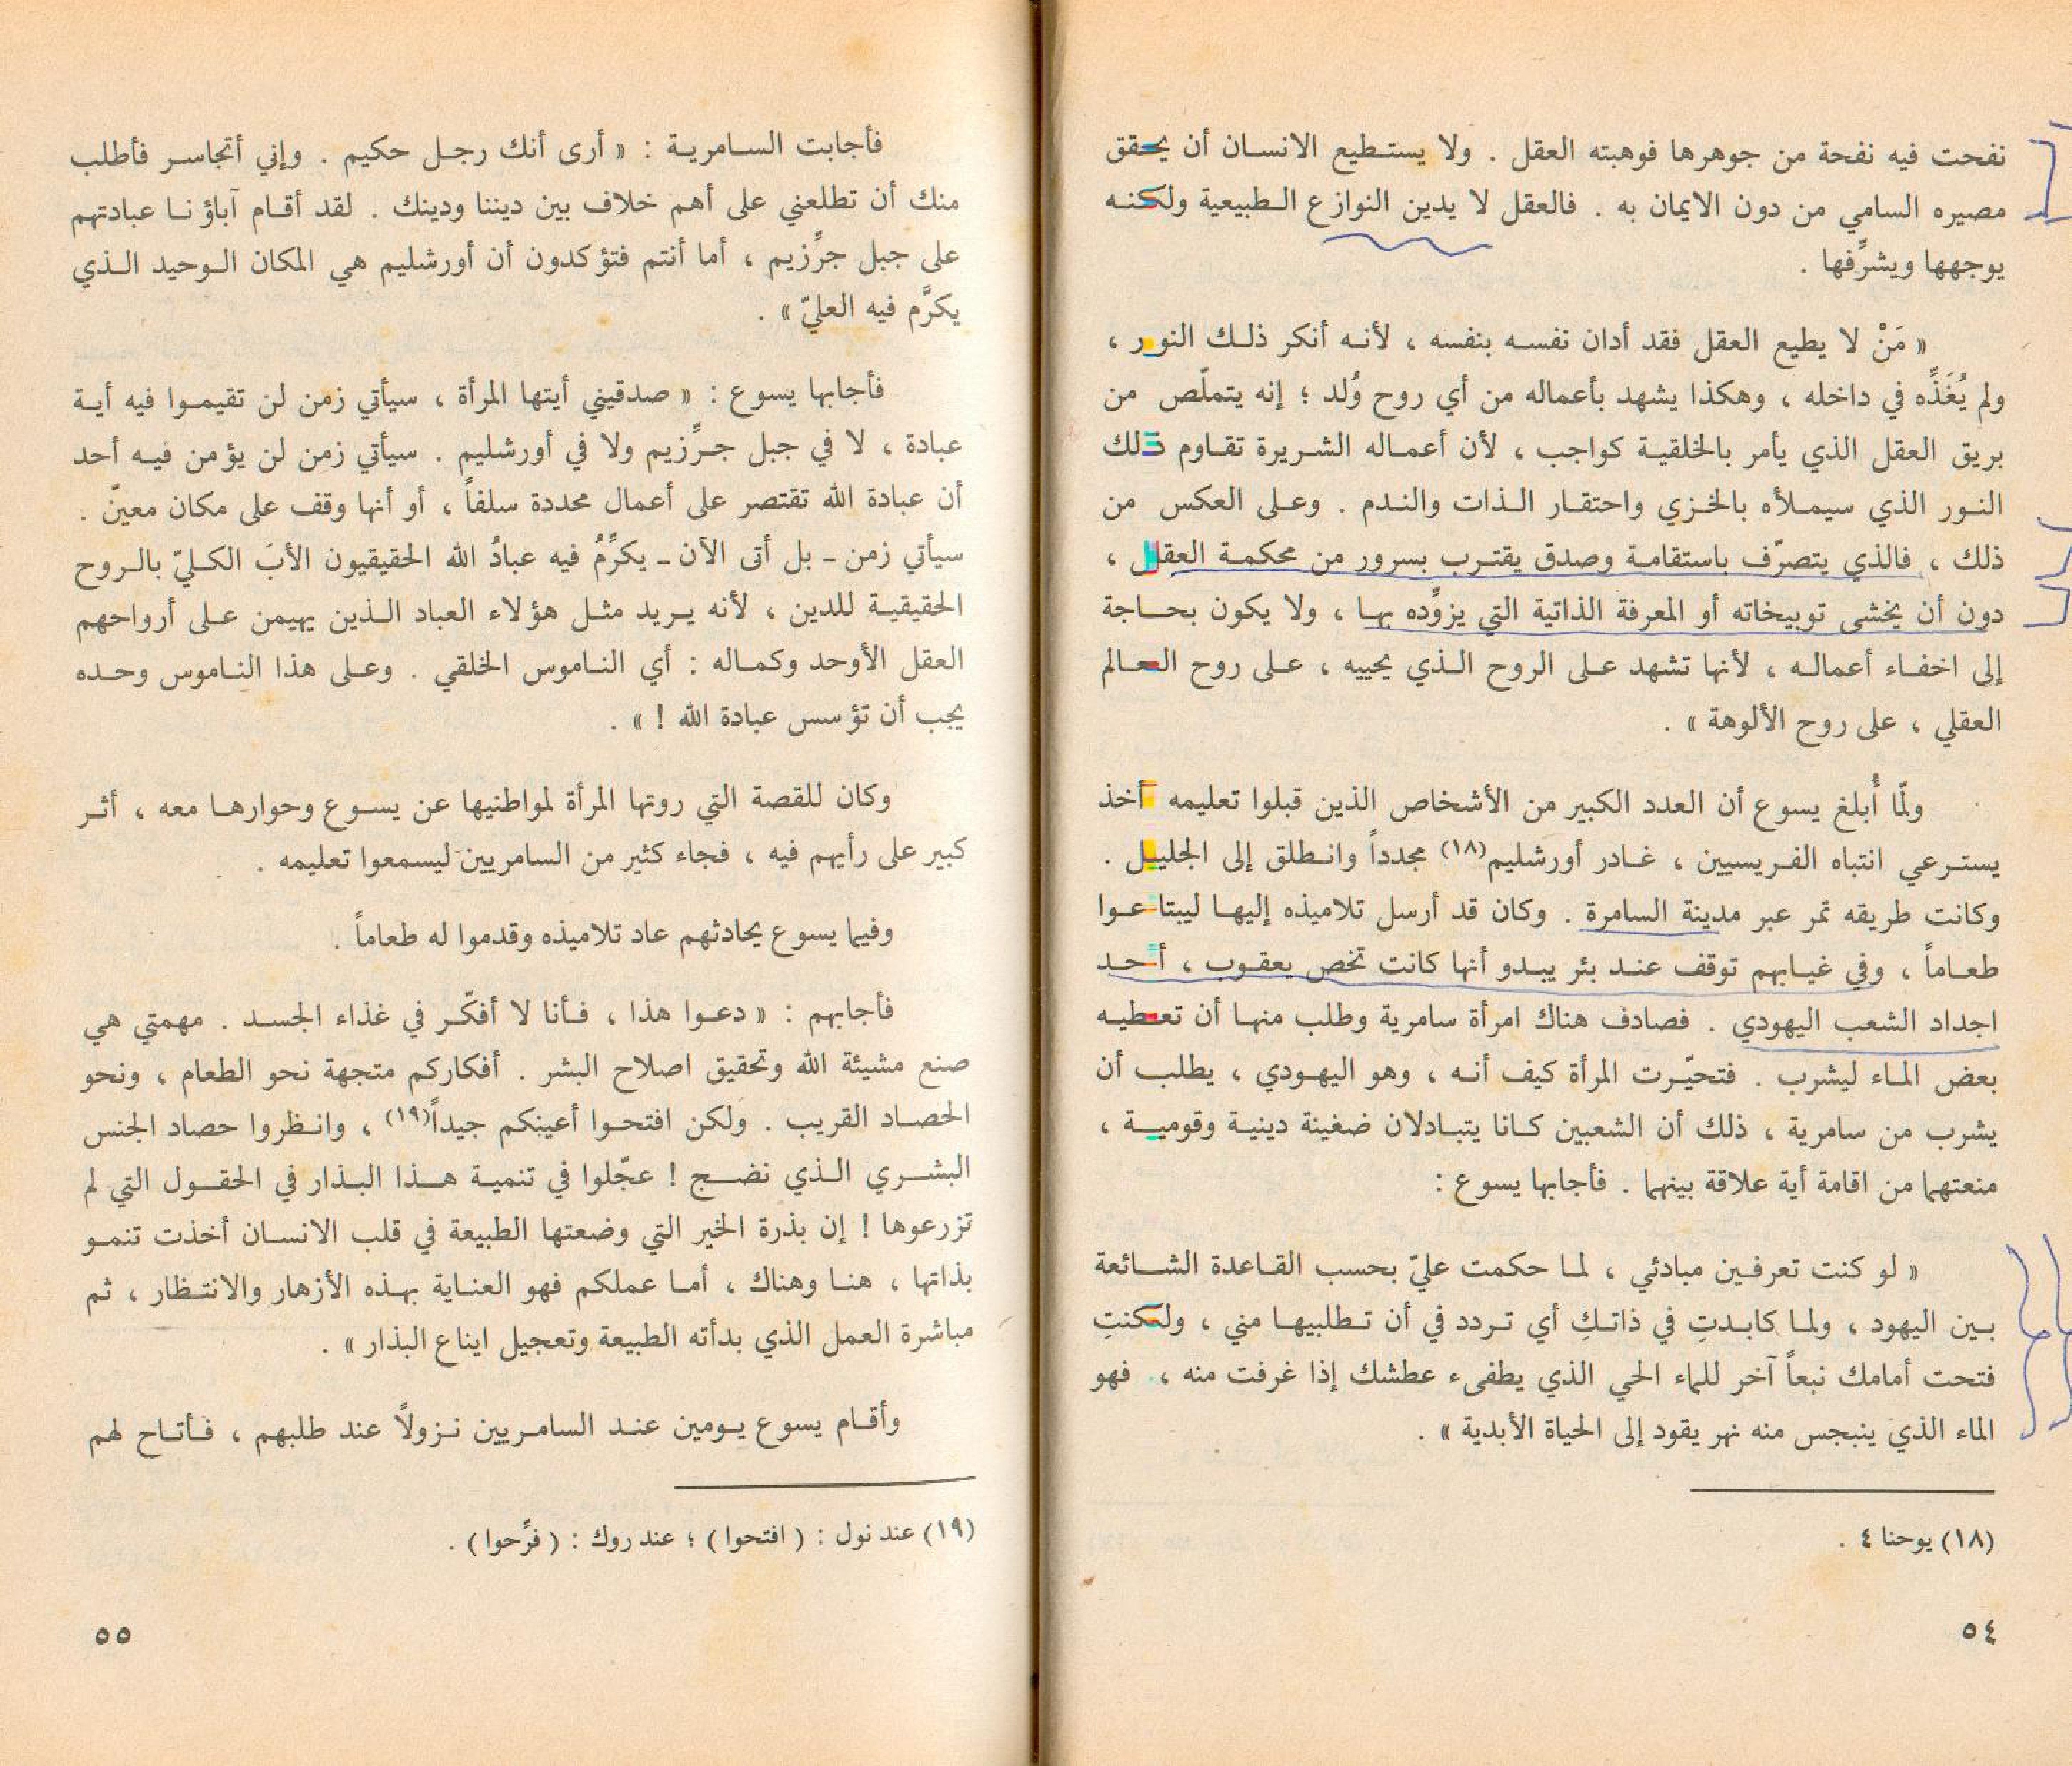 نفحت فيه نفحة من جوهرها فوهبته العقل . ولا يستطيع الانسان أن يحقق
مصيره السامي من دون الايمان به . فالعقل لا يدين النوازع الطبيعية ولكنه
يوجهها ويشرِّفها .
« مَنْ لا يطيع العقل فقد أدان نفسه بنفسه ، لأنه أنكر ذلك النور ،
ولم يُغَذِّه في داخله ، وهكذا يشهد بأعماله من أي روح وُلد ؛ إنه يتملّص من
بريق العقل الذي يأمر بالخلقية كواجب ، لأن أعماله الشريرة تقاوم ذلك
النور الذي سيملأه بالخزي واحتقار الذات والندم . وعلى العكس من
ذلك ، فالذي يتصرّف باستقامة وصدق يقترب بسرور من محكمة العقل ،
دون أن يخشى توبيخاته أو المعرفة الذاتية التي يزوِّده بها ، ولا يكون بحاجة
إلى اخفاء أعماله ، لأنها تشهد على الروح الذي يحييه ، على روح العالم
العقلي ، على روح الألوهة » .
ولمّا أُبلغ يسوع أن العدد الكبير من الأشخاص الذين قبلوا تعليمه أخذ
يسترعي انتباه الفريسيين ، غادر أورشليم(١٨) مجدداً وانطلق إلى الجليل .
وكانت طريقه تمر عبر مدينة السامرة . وكان قد أرسل تلاميذه إليها ليبتاعوا
طعاماً ، وفي غيابهم توقف عند بئر يبدو أنها كانت تخص يعقوب ، أحد
اجداد الشعب اليهودي . فصادف هناك امرأة سامرية وطلب منها أن تعطيه
بعض الماء ليشرب . فتحيّرت المرأة كيف أنه ، وهو اليهودي ، يطلب أن
يشرب من سامرية ، ذلك أن الشعبين كانا يتبادلان ضغينة دينية وقومية ،
منعتهما من اقامة أية علاقة بينهما . فأجابها يسوع :
« لو كنت تعرفين مبادئي ، لما حكمت عليّ بحسب القاعدة الشائعة
بين اليهود ، ولما كابدتِ في ذاتكِ أي تردد في أن تطلبيها مني ، ولكنتِ
فتحت أمامك نبعاً آخر للماء الحي الذي يطفىء عطشك إذا غرفت منه ، فهو
الماء الذي ينبجس منه نهر يقود إلى الحياة الأبدية » .
(١٨) يوحنا ٤ .
٥٤
فأجابت السامرية : « أرى أنك رجل حكيم . وإني أتجاسر فأطلب
منك أن تطلعني على أهم خلاف بين ديننا ودينك . لقد أقام آباؤنا عبادتهم
على جبل جرِّزيم ، أما أنتم فتؤكدون أن أورشليم هي المكان الوحيد الذي
يكرَّم فيه العليّ » .
فأجابها يسوع : « صدقيني أيتها المرأة ، سيأتي زمن لن تقيموا فيه أية
عبادة ، لا في جبل جرِّزيم ولا في أورشليم . سيأتي زمن لن يؤمن فيه أحد
أن عبادة الله تقتصر على أعمال محددة سلفاً ، أو أنها وقف على مكان معينّ .
سيأتي زمن ـ بل أتى الآن ـ يكرِّمُ فيه عبادُ الله الحقيقيون الأبَ الكليّ بالروح
الحقيقية للدين ، لأنه يريد مثل هؤلاء العباد الذين يهيمن على أرواحهم
العقل الأوحد وكماله : أي الناموس الخلقي . وعلى هذا الناموس وحده
يجب أن تؤسس عبادة الله ! » .
وكان للقصة التي روتها المرأة لمواطنيها عن يسوع وحوارها معه ، أثر
كبير على رأيهم فيه ، فجاء كثير من السامريين ليسمعوا تعليمه .
وفيما يسوع يحادثهم عاد تلاميذه وقدموا له طعاماً .
فأجابهم : « دعوا هذا ، فأنا لا أفكّر في غذاء الجسد . مهمتي هي
صنع مشيئة الله وتحقيق اصلاح البشر . أفكاركم متجهة نحو الطعام ، ونحو
الحصاد القريب . ولكن افتحوا أعينكم جيداً(١٩) ، وانظروا حصاد الجنس
البشري الذي نضج ! عجّلوا في تنمية هذا البذار في الحقول التي لم
تزرعوها ! إن بذرة الخير التي وضعتها الطبيعة في قلب الانسان أخذت تنمو
بذاتها ، هنا وهناك ، أما عملكم فهو العناية بهذه الأزهار والانتظار ، ثم
مباشرة العمل الذي بدأته الطبيعة وتعجيل ايناع البذار » .
وأقام يسوع يومين عند السامريين نزولاً عند طلبهم ، فأتاح لهم
(١٩) عند نول : ( افتحوا ) ؛ عند روك : ( فرِّحوا ) .
٥٥